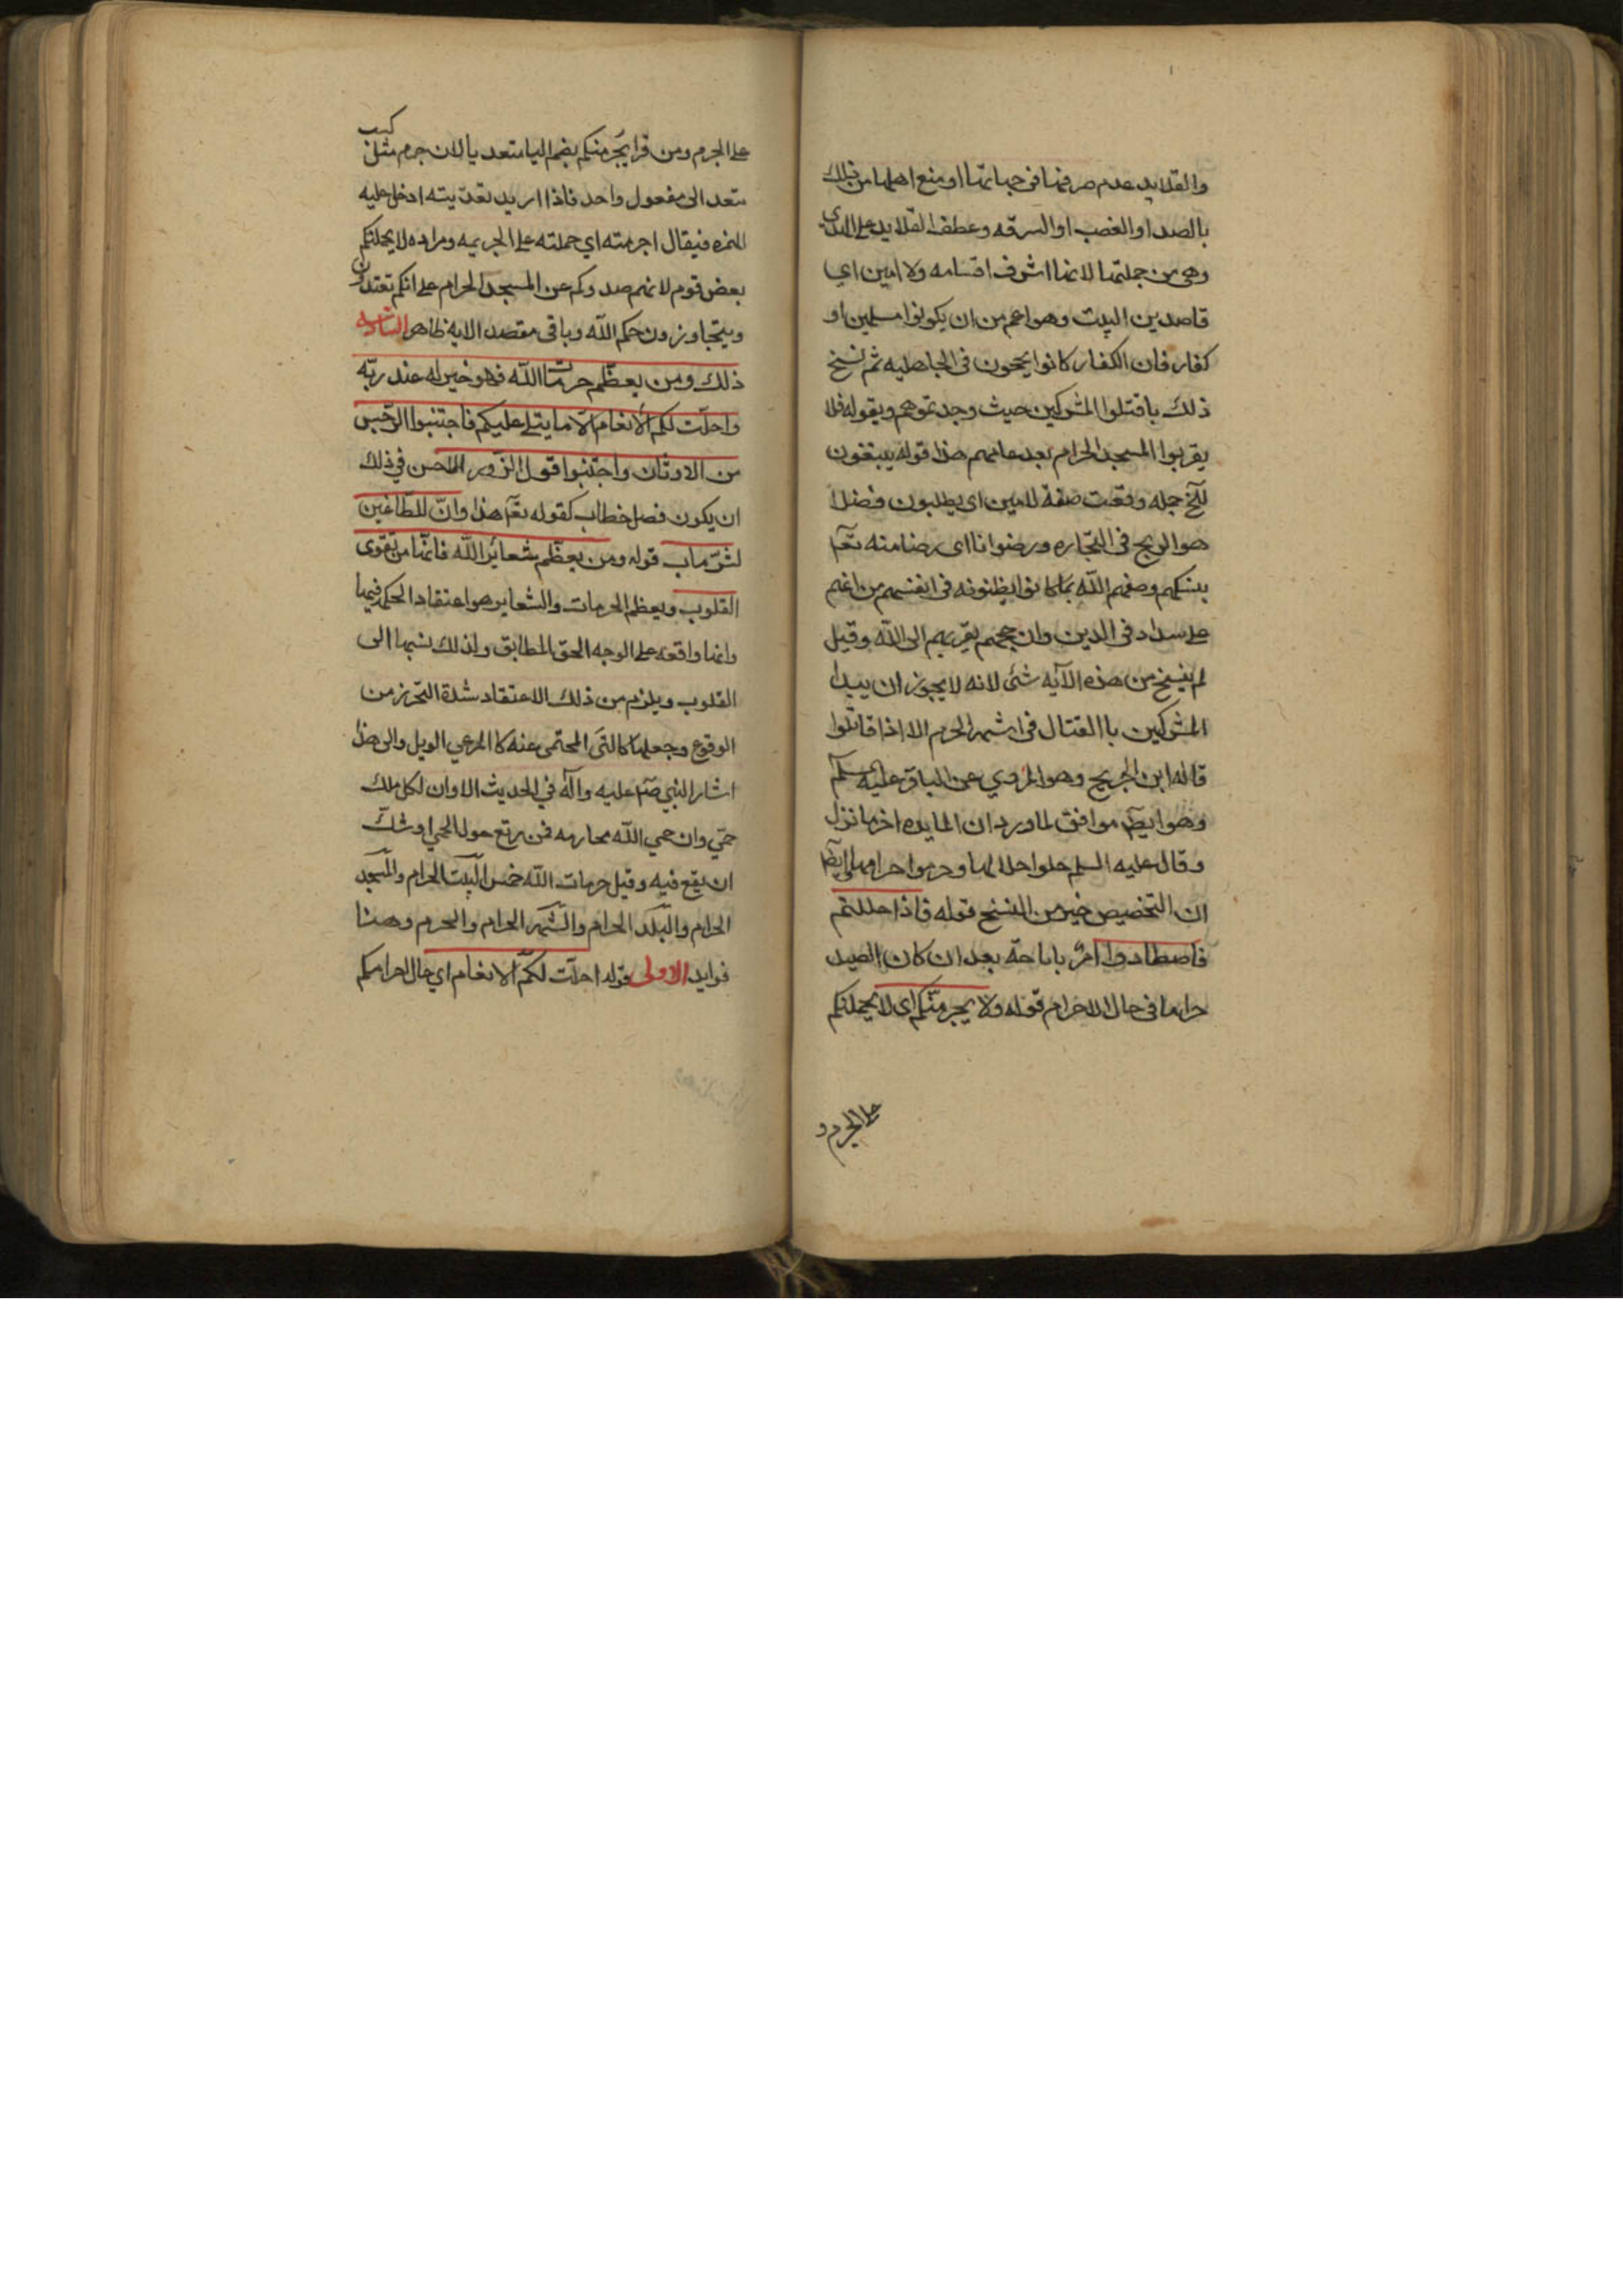 والقلايد عدم صرفها في جهاتها او منع اهلها من ذلك
بالصد او الغصب او السرقه وعطف القلايد على الهدى
وهي من جملتها لانها اشرف اقسامه ولا امين اي
قاصدين البيت وهو اعم من ان يكونوا مسلمين او
كفار فان الكفار كانوا يحجون في الجاهليه ثم نسخ
ذلك باقتلوا المشركين حيث وجدتموهم وبقوله فلا
يقربوا المسجد الحرام بعد عامهم هذا قوله يبتغون
لآخ جمله وقعت صفة لامين اى يطلبون فضلا
هو الربح في التجاره ورضوانا اى رضا منه تعآ
بنسكهم وصفهم الله بما كانوا يظنونه في انفسهم من انهم
على سداد في الدين وان حجهم يقربهم الى الله وقيل
لم ينسخ من هذه الآيه شئ لانه لا يجوز ان يبدا
المشركين باالقتال في اشهر الحرم الا اذا قاتلوا
قاله ابن الجريج وهو المروي عن الباقر عليه سلم
وهو ايضآ موافق لما ورد ان المايده اخر ما نزل
وقال عليه السلم حلوا حلالها وحرموا حرامها ايضآ
ان التخصيص خير من النسخ قوله فاذا حللتم
فاصطادوا امرٌ باباحة بعد ان كان الصيد
حراما في حال الاحرام قوله ولا يجرمنّكم اى لا يحملنكم
على الجرم و
على الجرم ومن قرا يُجرمنكم بضم اليا متعد يا لان جرم مثل كسب
متعد الى مفعول واحد فاذا اريد تعديته ادخل عليه
الهمزه فيقال اجرمته اي حملته على الجريمه ومراده لا يحملنكم
بعض قوم لانهم صدوكم عن المسجد الحرام على انكم تعتدون
ويتجاوزون حكم الله وباقي مقصد الايه ظاهر الثالثه
ذلك ومن يعظّم حرمات الله فهو خير له عند ربّه
واحلّت لكم الأنعام الّا ما يتلى عليكم فاجتنبوا الرّجس
من الاوثان واجتنبوا قول الزّور الاحسن في ذلك
ان يكون فصل خطاب كقوله تعآ هذا وانّ للطّاغين
لشرّ ماب قوله ومن يعظّم شعائر الله فانّها من تقوى
القلوب ويعظم الحرمات والشعاير هو اعتقاد الحكم فيها
وانها واقعه على الوجه الحق المطابق ولذلك نسبها الى
القلوب ويلزم من ذلك الاعتقاد شدة التحرز من
الوقوع وجعلها كالشي المحتمى عنه كا المرعي الوبل والى هذا
اشار النبي صلم عليه وآله في الحديث الا وان لكل ملك
حمّي وان حمي الله محارمه فمن رتع حول الحمي اوشكّ
ان يقع فيه وقيل حرمات الله خمس البيت الحرام والمسجد
الحرام والبلد الحرام والشهر الحرام والمحرم وهنا
فوايد الاولى قوله احلّت لكم الانعام اي حال احرامكم